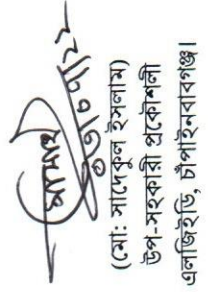 (মো: সাদেকুল ইসলাম)
উপ-সহকারী প্রকৌশলী
এলজিইডি, চাঁপাইনবাবগঞ্জ।